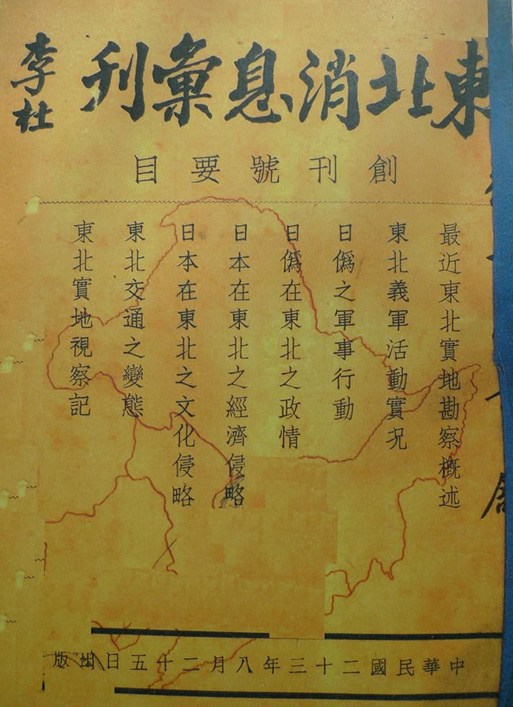 東北消息彙刊
李杜
創刊號要目
最近東北實地勘察概述
東北義軍活動實況
日僞之軍事行動
日僞在東北之政情
日本在東北之經濟侵略
日本在東北之文化侵略
東北交通之變態
東北實地視察記
中華民國二十三年八月二十五日出版